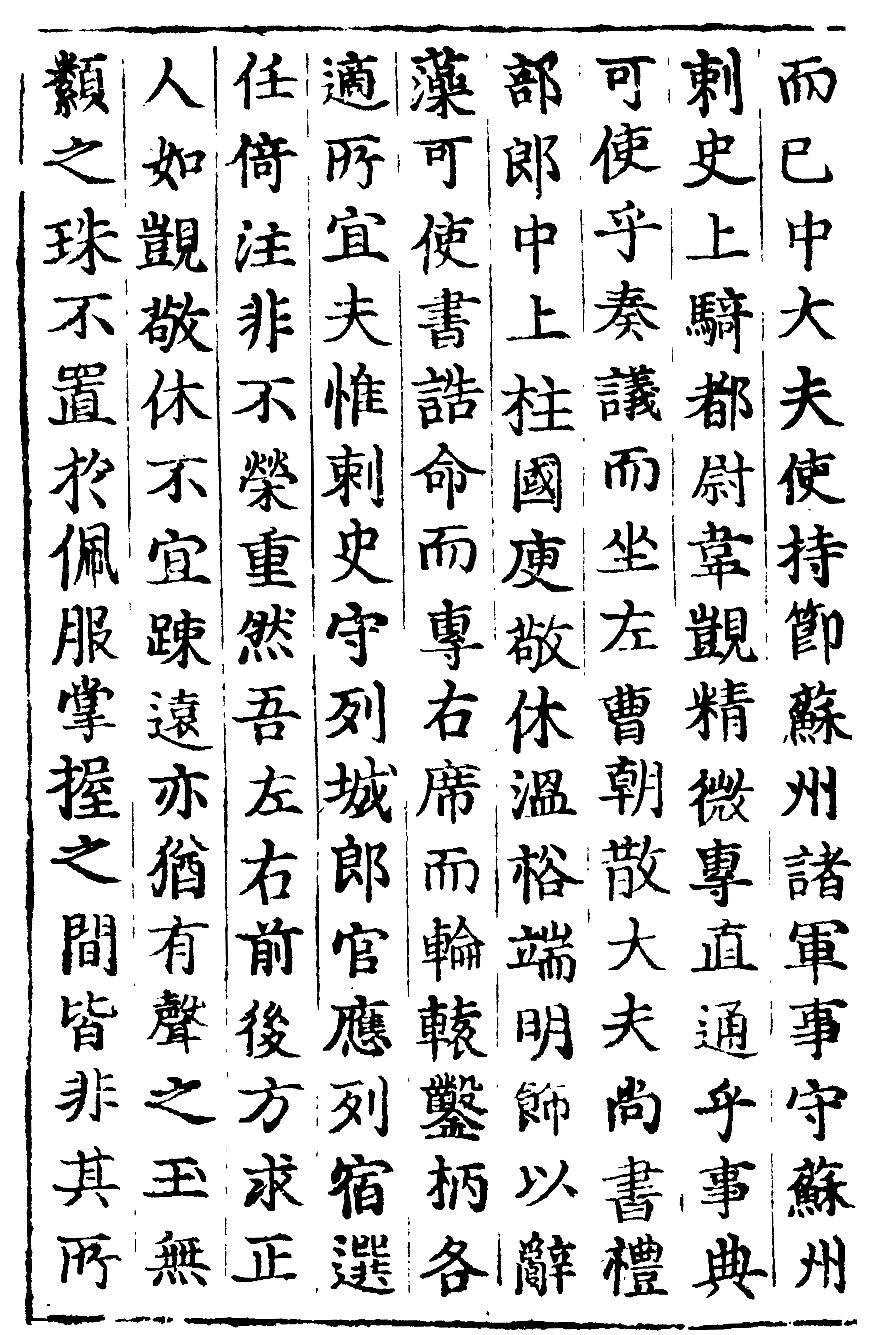 而已中大夫使持節蘇州諸軍事守蘇州
刺史上騎都尉韋覬精微專直通乎事典
可使乎奏議而坐左曹朝散大夫尚書禮
部郎中上柱國庾敬休溫裕端明飾以辭
藻可使書誥命而專右席而輪轅鑿枘各
適所宜夫惟刺史守列城郎官應列宿選
任倚注非不榮重然吾左右前後方求正
人如覬敬休不宜踈遠亦猶有聲之玉無
纇之珠不置於佩服掌握之間皆非其所